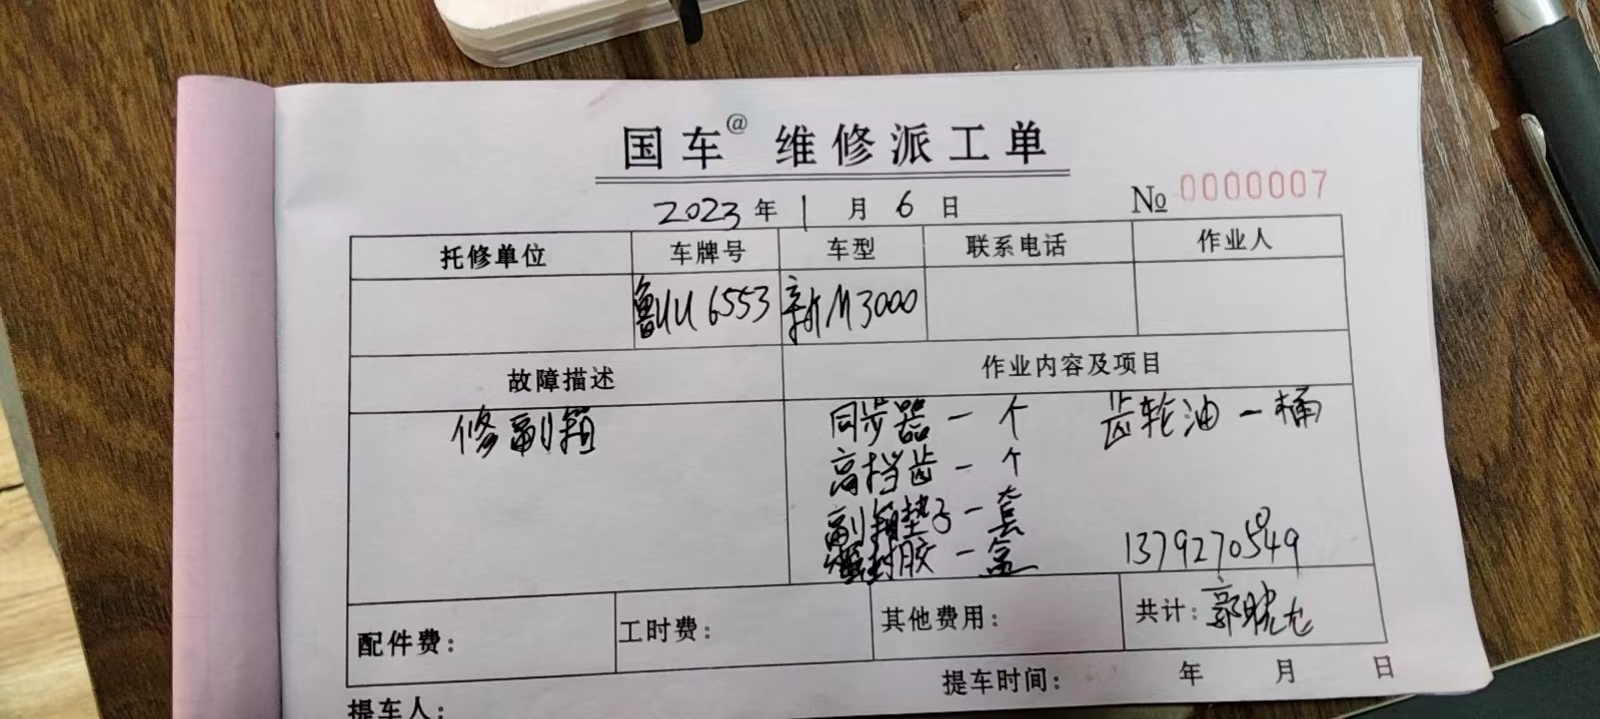 国车@ 维修派工单
2023年1月6日 № 0000007
托修单位 车牌号 车型 联系电话 作业人
鲁UU6553 新M3000
故障描述 作业内容及项目
修副箱 同步器一个 齿轮油一桶
高档齿一个
副箱垫子一套
密封胶一盒
配件费： 工时费： 其他费用： 共计：郭晓龙
提车时间： 年 月 日
提车人：